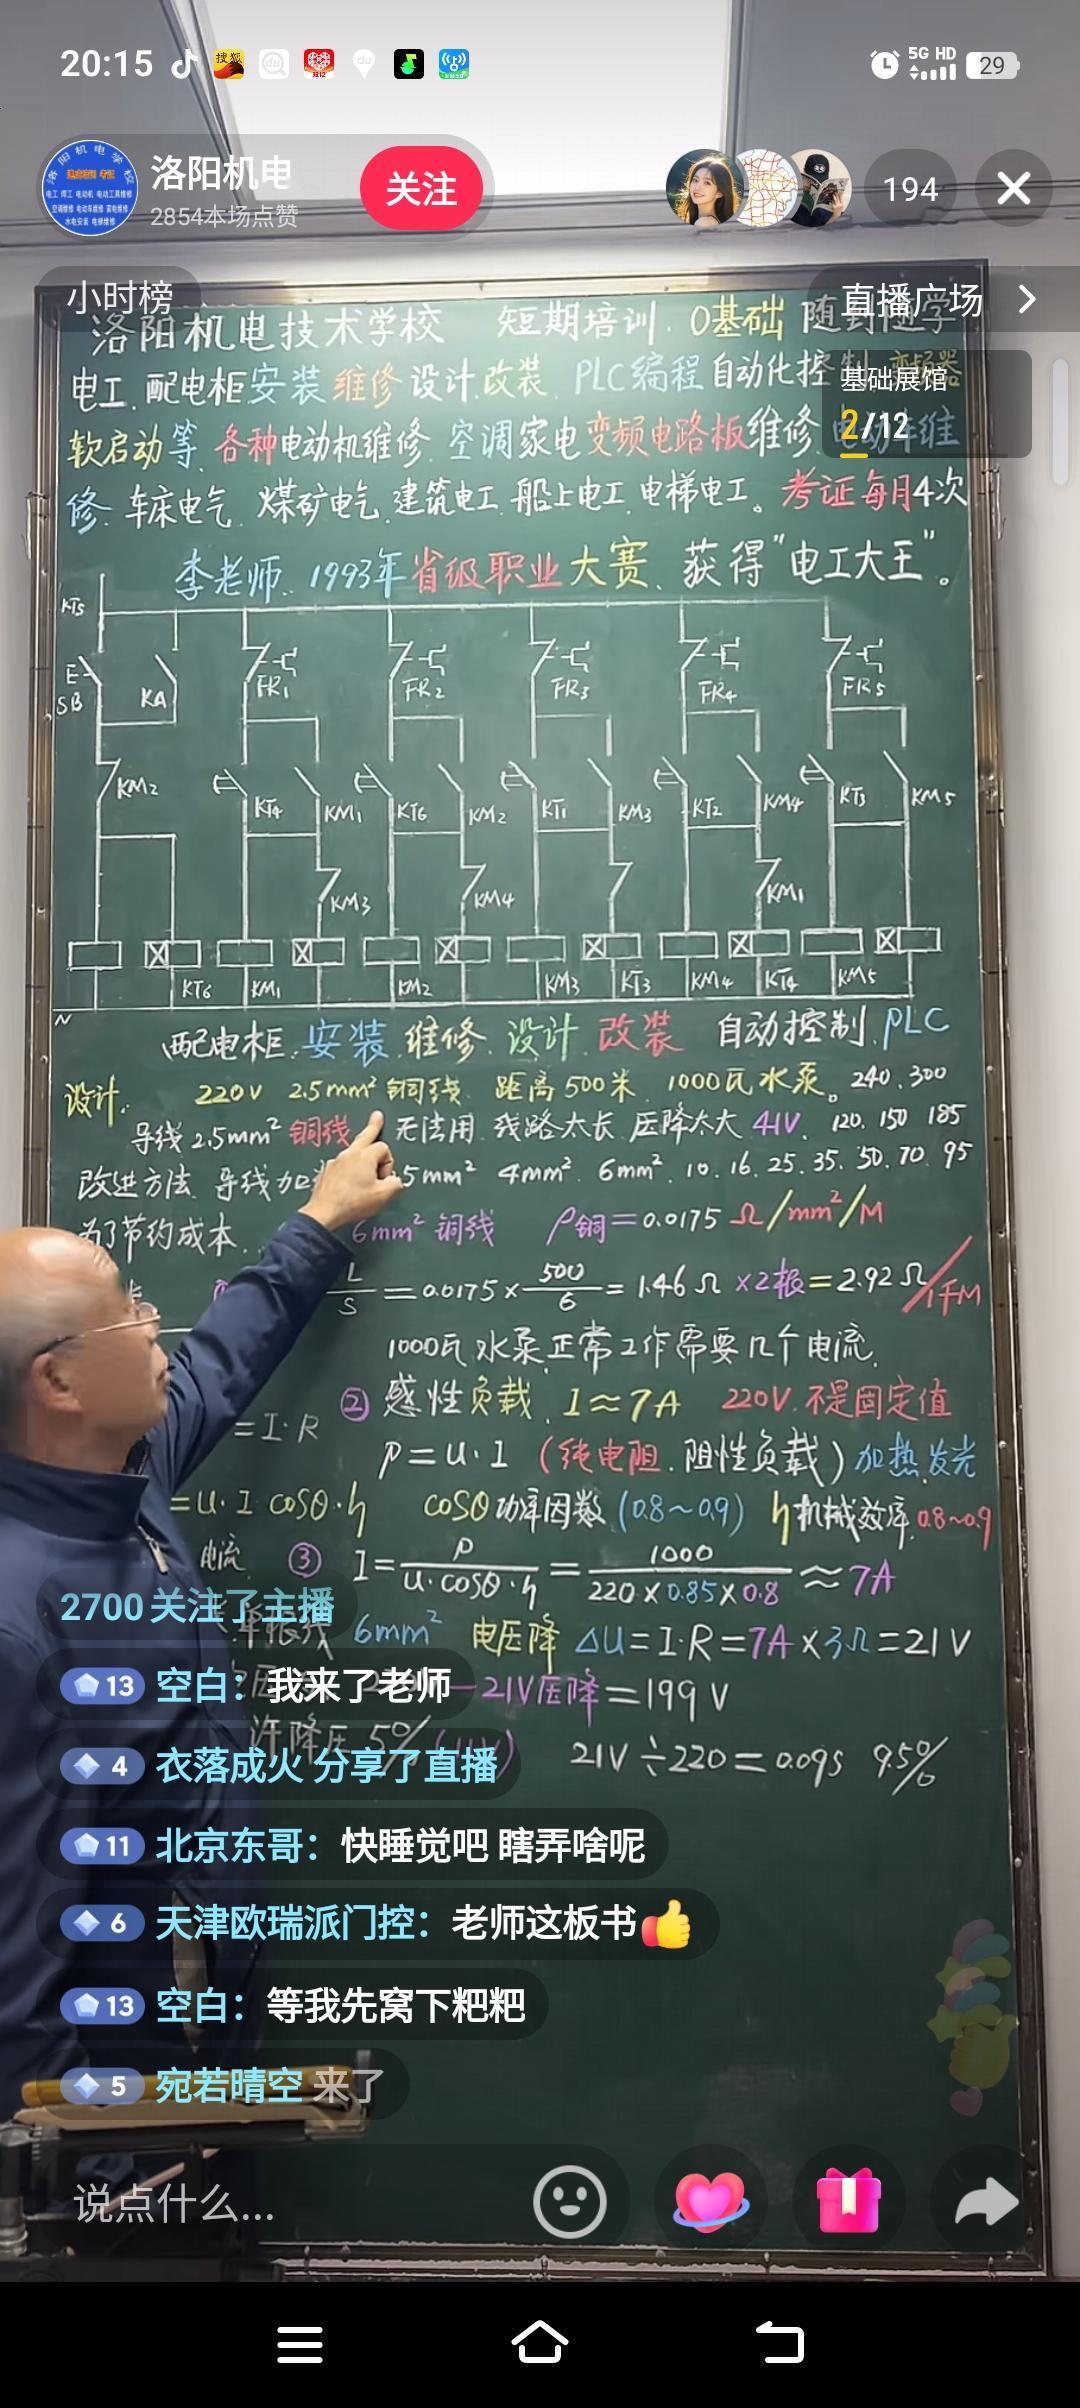 20:15
5G HD
29
洛阳机电
2854本场点赞
关注
194
小时榜
直播广场
洛阳机电技术学校 短期培训. 0基础 随到随学
电工.配电柜安装维修设计.改装. PLC编程自动化控制.变频器
基础展馆
2/12
软启动等.各种电动机维修.空调家电变频电路板维修
修.车床电气.煤矿电气.建筑电工.船上电工.电梯电工。考证每月4次
李老师..1993年省级职业大赛.获得"电工大王"。
KT5
E
SB
KA
FR1
FR2
FR3
FR4
FR5
KM2
KT4
KM1
KT6
KM2
KT1
KM3
KT2
KM4
KT3
KM5
KM3
KM4
KM1
KT6
KM1
KM2
KM3
KT3
KM4
KT4
KM5
N
配电柜.安装.维修.设计.改装 自动控制.PLC
设计. 220V 2.5mm² 铜线. 距离500米. 1000瓦水泵。240.300
导线2.5mm² 铜线 无法用.线路太长.压降太大 41V. 120.150 185
改进方法.导线加 5mm² 4mm². 6mm².10.16.25.35.50.70.95
为了节约成本.. 6mm² 铜线 ρ铜=0.0175 Ω/mm²/M
L/S=0.0175×500/6=1.46Ω×2根=2.92Ω/千M
1000瓦水泵.正常工作需要几个电流.
② 感性负载.I≈7A 220V.不是固定值
=I·R
P=U·I (纯电阻.阻性负载)加热.发光
=U·I cosθ·η cosθ功率因数(0.8~0.9) η机械效率.0.8~0.9
电流 ③ I=P/U·cosθ·η=1000/220×0.85×0.8≈7A
2700 关注了主播
6mm² 电压降 ΔU=I·R=7A×3Ω=21V
13 空白：我来了老师
-21V压降=199V
许降压 5%
21V÷220=0.095 9.5%
4 衣落成火 分享了直播
11 北京东哥：快睡觉吧 瞎弄啥呢
6 天津欧瑞派门控：老师这板书
13 空白：等我先窝下粑粑
5 宛若晴空 来了
说点什么...